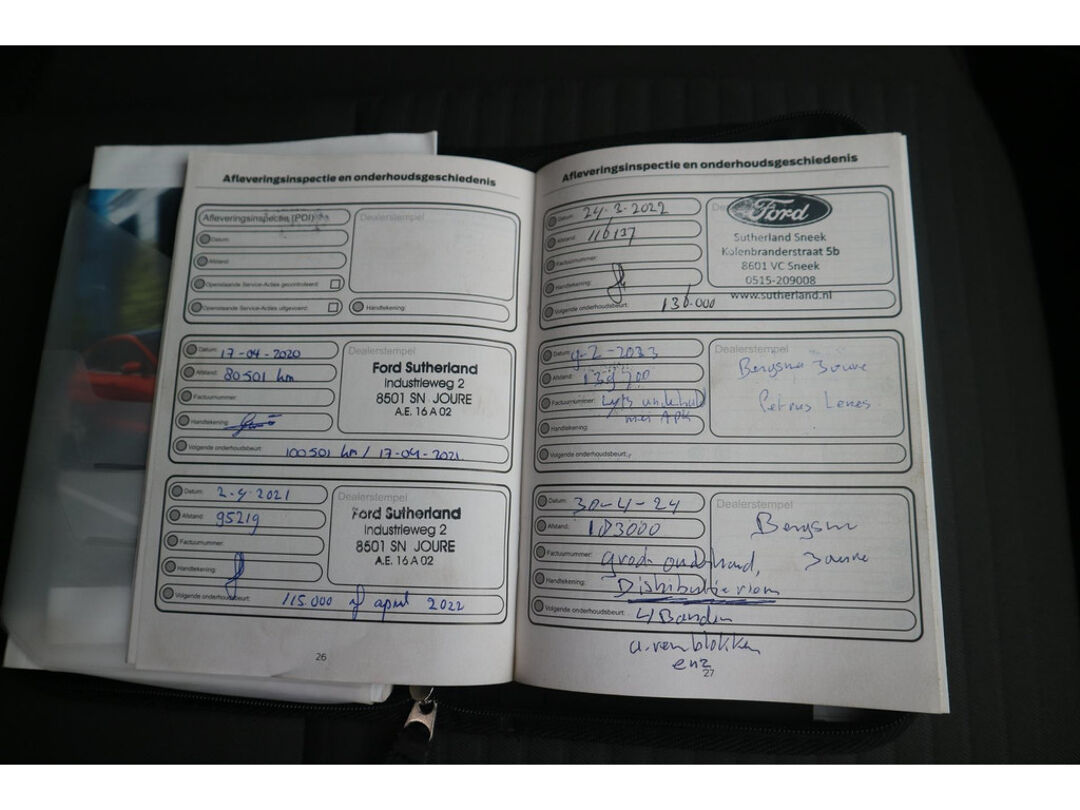 Afleveringsinspectie en onderhoudsgeschiedenis
Afleveringsinspectie (PDI)
Dealerstempel
Datum:
Afstand:
Openstaande Service-Acties gecontroleerd:
Openstaande Service-Acties uitgevoerd:
Handtekening:
Datum: 17-04-2020
Dealerstempel
Afstand: 80501 km
Ford Sutherland
Industrieweg 2
8501 SN JOURE
A.E. 16 A 02
Factuurnummer:
Handtekening:
Volgende onderhoudsbeurt: 100501 km / 17-04-2021
Datum: 2-4-2021
Dealerstempel
Afstand: 95219
Ford Sutherland
Industrieweg 2
8501 SN JOURE
A.E. 16 A 02
Factuurnummer:
Handtekening:
Volgende onderhoudsbeurt: 115.000 of april 2022
26
Afleveringsinspectie en onderhoudsgeschiedenis
Datum: 24-3-2022
Ford
Afstand: 116137
Sutherland Sneek
Kolenbranderstraat 5b
8601 VC Sneek
0515-209008
www.sutherland.nl
Factuurnummer:
Handtekening:
Volgende onderhoudsbeurt: 136.000
Datum:
Dealerstempel
Afstand:
Bergsma Joure
Factuurnummer:
met APK
Petrus
Handtekening:
Volgende onderhoudsbeurt:
Datum: 30-4-24
Dealerstempel
Afstand: 183000
Bergsma
Joure
Factuurnummer:
groot onderhoud,
Handtekening:
Distributieriem
Volgende onderhoudsbeurt:
4 Banden
remblokken
enz
27